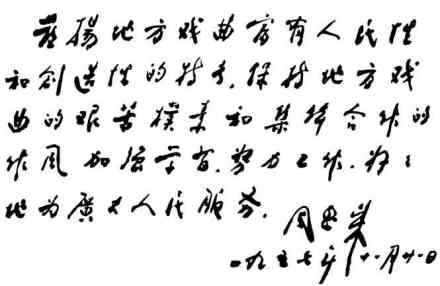 发扬地方戏曲富有人民性
和创造性的特长,保持地方戏
曲的艰苦樸素和集体合作的
作风,加强学习,努力工作,好好
地为廣大人民服务。
周恩来
一九五七年十一月廿一日